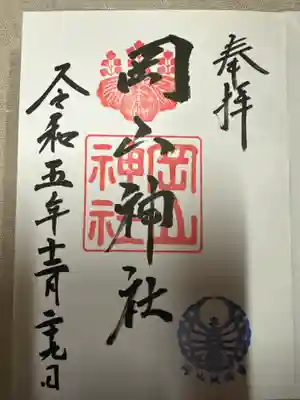 奉拝
岡山神社
岡山
神社
令和五年十二月二十九日